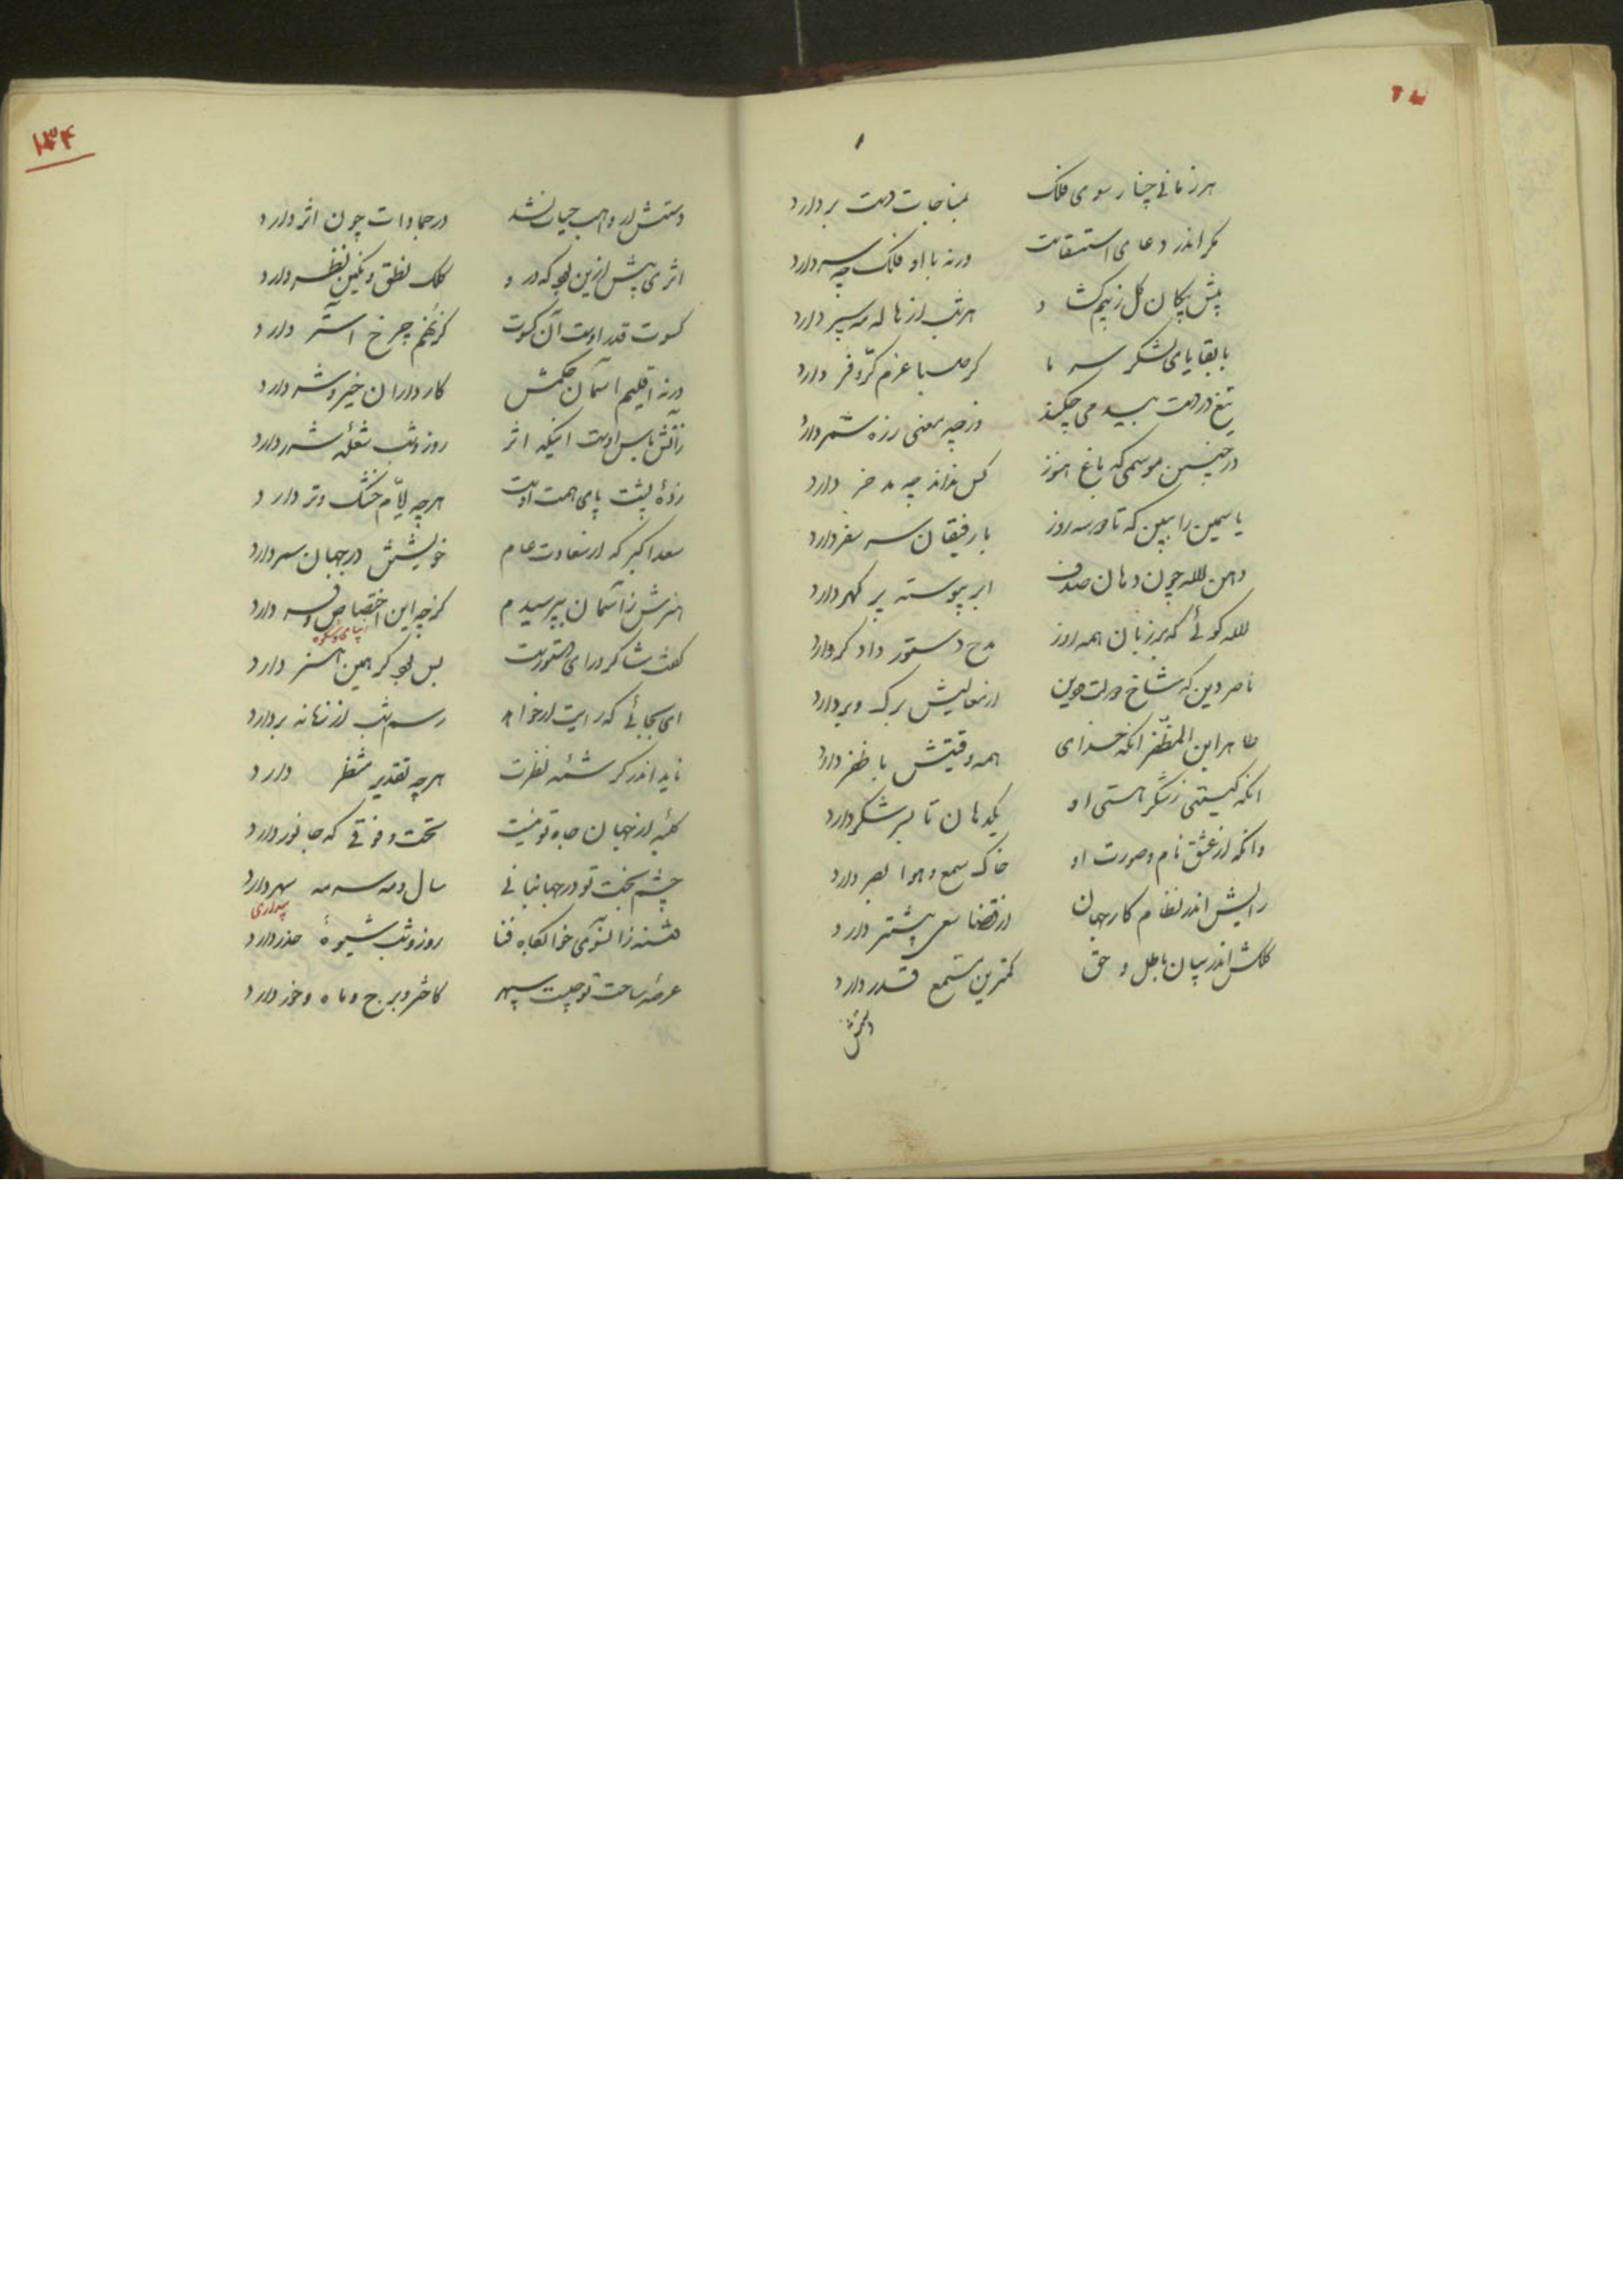 هر زمانی چنار سوی فلک بمناجات دست بردارد
مگر اندر دعای استسقاست ورنه با او فلک چه سر دارد
پیش پیکان گل ز بیم گشاد هر شب از هاله مه سپر دارد
با بقایای لشکر سرما گر صبا عزم کرّ و فر دارد
تیغ در دست بید می چکند وز چه معنی زره شمر دارد
در چنین موسمی که باغ هنوز کس نداند چه مدخر دارد
یاسمین را ببین که تا دو سه روز با رفیقان سر سفر دارد
دهن لاله چون دهان صدف ابر پیوسته پر گهر دارد
لاله گوئی که بر زبان همه روز مدح دستور دادگر دارد
ناصر دین که شاخ دولت و دین از معالیش برگ و بر دارد
طاهر ابن المظفّر آنکه خدای همه وقتیش با ظفر دارد
آنکه گیتی ز شکر هستی او یکدهان تا بسر شکر دارد
وانکه از عشق نام و صورت او خاک سمع و هوا بصر دارد
رایش اندر نظام کار جهان از قضا سعی پیشتر دارد
کلکش اندر بیان باطل و حق کمترین مستمع قدر دارد
دستش
۱۳۴
دستش ار واهب حیات نشد در جمادات چون اثر دارد
اثری پیش ازین بود که درو کلک نطق و نگین نظر دارد
کسوت قدر اوست آن کسوت کز نهم چرخ آستر دارد
ورنه اقلیم آسمان حکمش کارداران خیر و شر دارد
ز آتش باس اوست اینکه اثر روز و شب شعله شرر دارد
زدهٔ پشت پای همت اوست هر چه ایّام خشک و تر دارد
سعد اکبر که از سعادت عام خویشتن در جهان سمر دارد
هنرش ز آسمان بپرسیدم کز چه این اختصاص و فر دارد
گفت شاگرد رای دستور است بس بود گر همین هنر دارد
ای بجائی که رایت ار خواهد رسم شب از زمانه بردارد
ناید اندر کرشمه نظرت هر چه تقدیر منتظر دارد
کلبه از جهان جاه تو نیست تحت و فوقی که جانور دارد
چشم بخت تو در جهانبانی سال و مه سرمه سهر دارد
بیداری
فتنه زآنسوی خوابگاه فنا روز و شب شیوهٔ حذر دارد
عرصهٔ ساحت تو چیست سپهر کاختر و برج و ماه و خور دارد